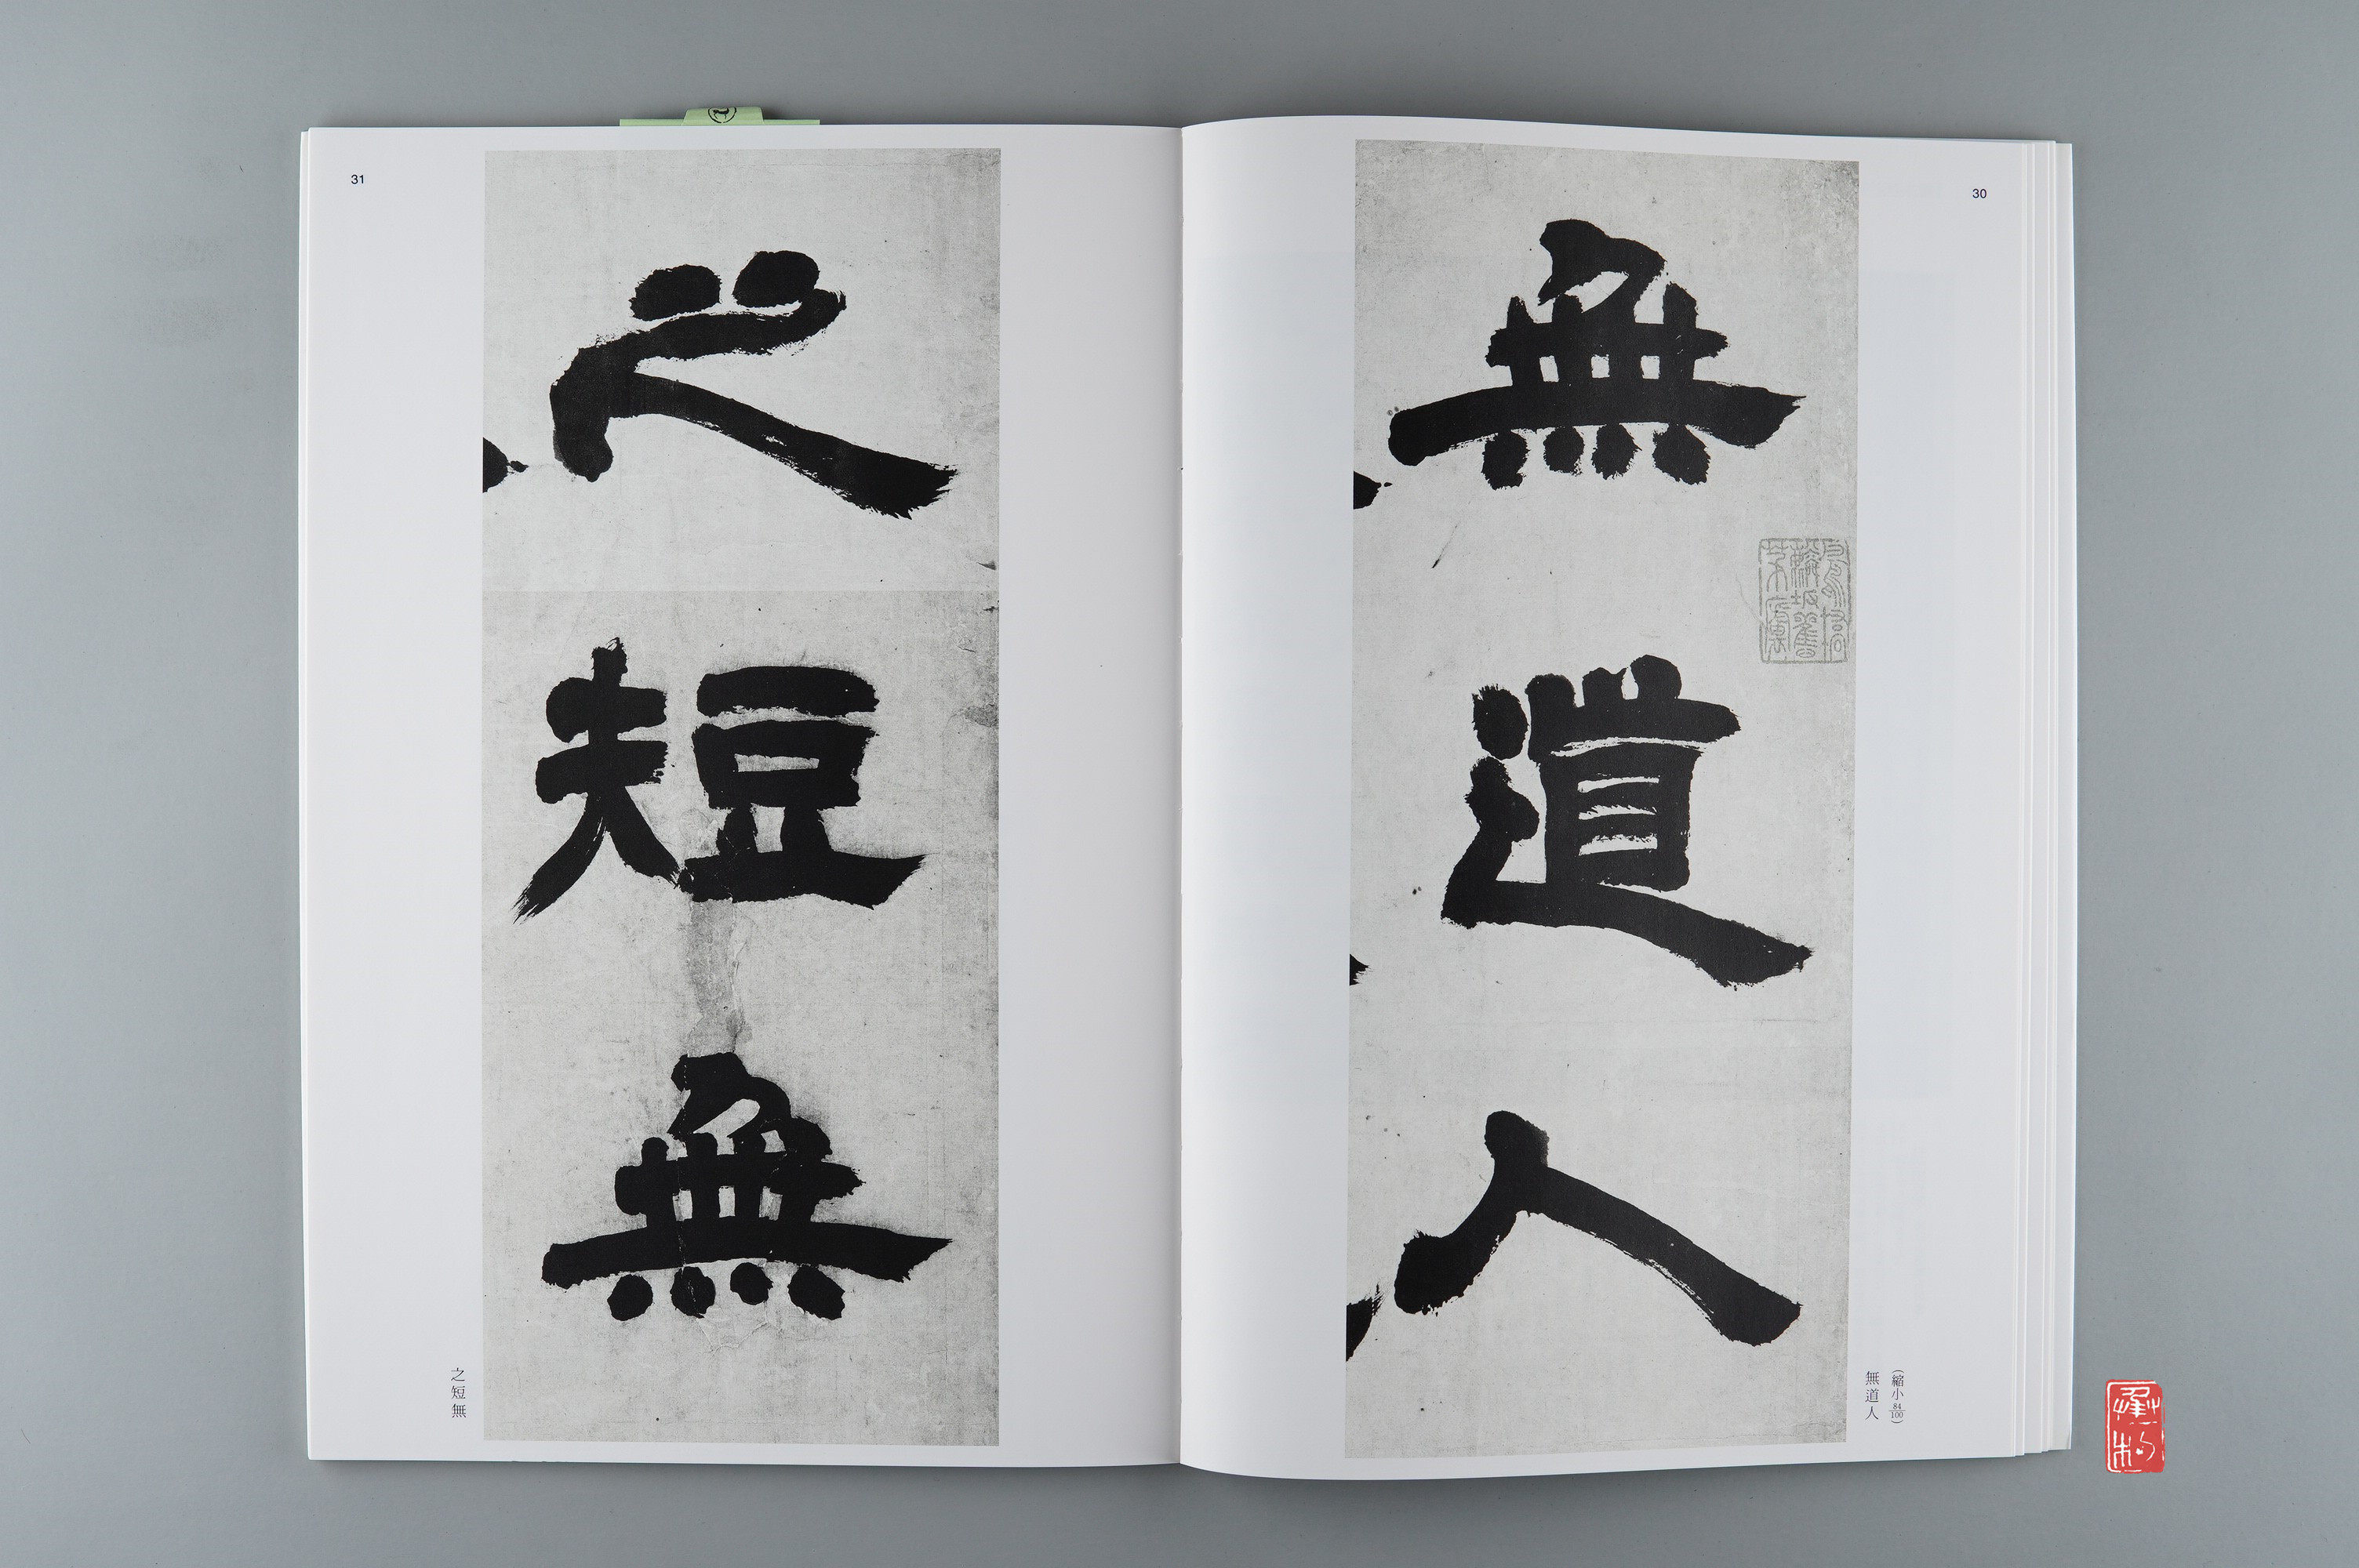 30
無道人
(縮小84/100)
無道人
31
之短無
之短無